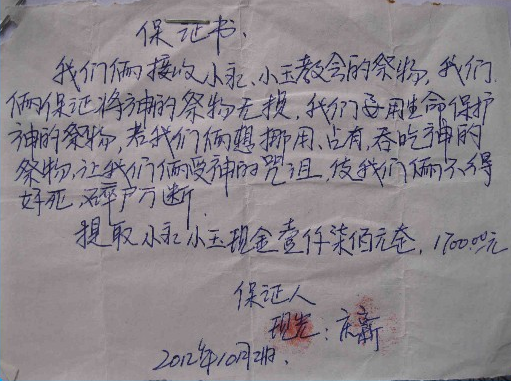 保证书、
我们俩接收小永、小玉教会的祭物,我们
俩保证将神的祭物无损,我们要用生命保护
神的祭物,若我们俩想挪用、占有、吞吃神的
祭物,让我们俩受神的咒诅,使我们俩不得
好死,碎尸万断.
提取小永小玉现金壹仟柒佰元左,1700.00元
保证人
现光:庆新
2012年10月2日.